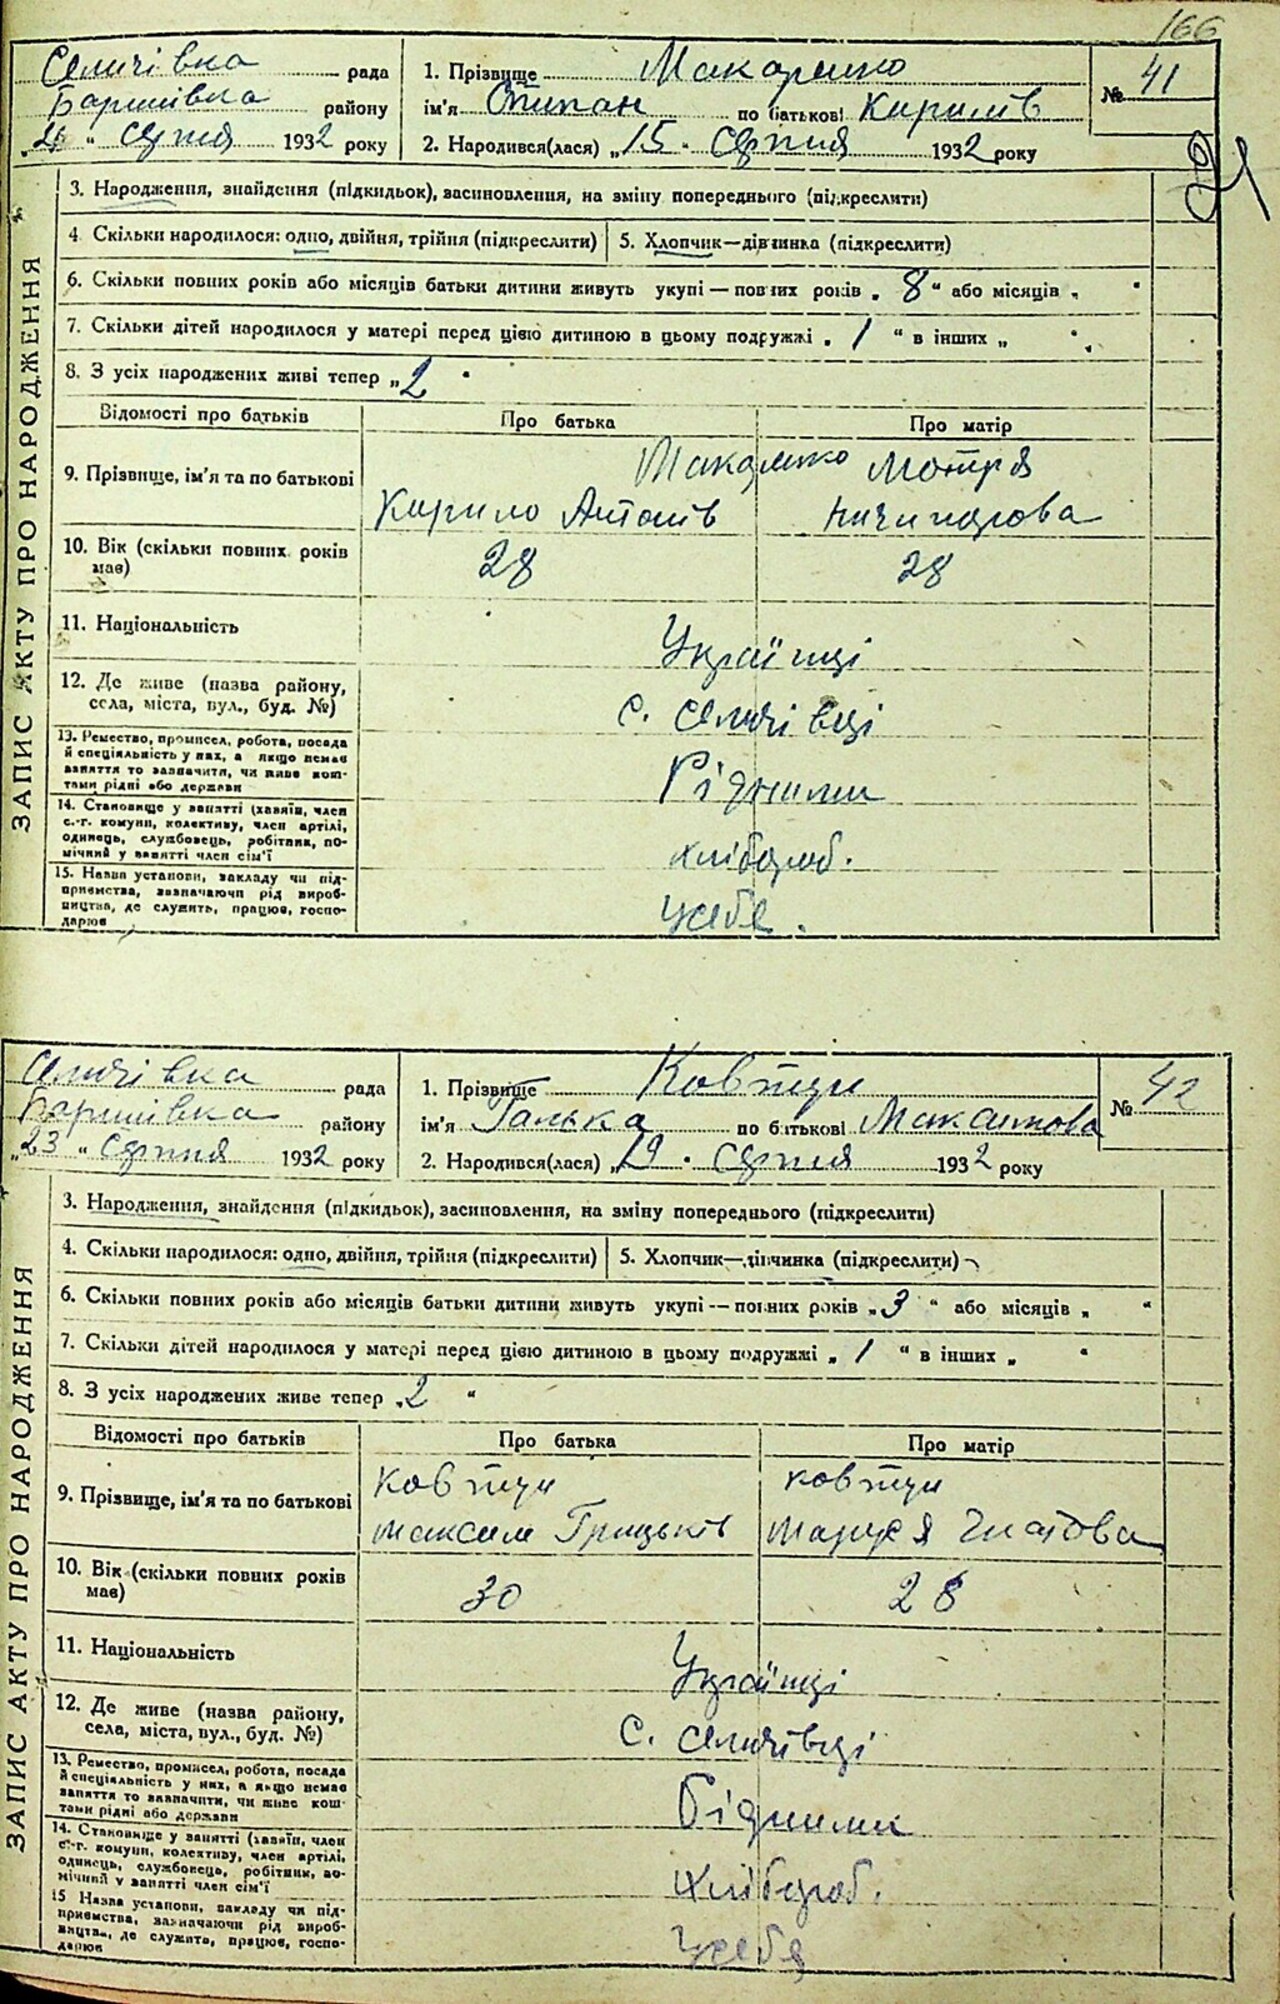 166
Селичівка рада
Баришівка району
„21 “ серпня 1932 року
1. Прізвище Макаренко
ім'я Степан по батькові Кирилів
2. Народився(лася) „15 “ Серпня 1932 року
№ 41
ЗАПИС АКТУ ПРО НАРОДЖЕННЯ
3. Народження, знайдення (підкидьок), засиновлення, на зміну попереднього (підкреслити)
4 Скільки народилося: одно, двійня, трійня (підкреслити) 5. Хлопчик—дівчинка (підкреслити)
6. Скільки повних років або місяців батьки дитини живуть укупі — повних років „ 8 “ або місяців „ “
7. Скільки дітей народилося у матері перед цією дитиною в цьому подружжі „ 1 “ в інших „ “
8. З усіх народжених живі тепер „2 “
Відомості про батьків Про батька Про матір
9. Прізвище, ім'я та по батькові Макаренко Мотря
Кирило Антонів Ничипорова
10. Вік (скільки повних років має) 28 28
11. Національність Українці
12. Де живе (назва району,
села, міста, вул., буд. №) с. Селичівці
13. Ремество, промисел, робота, посада
й спеціяльність у них, а якщо немає
заняття то зазначити, чи живе кош-
тами рідні або держави Рідними
14. Становище у занятті (хазяїн, член
с.-г. комуни, колективу, член артілі,
одинець, службовець, робітник, по-
мічний у занятті член сім'ї хлібороб.
15. Назва установи, закладу чи під-
приємства, зазначаючи рід вироб-
ництва, де служить, працює, госпо-
дарює Усебе.
Селичівка рада
Баришівка району
„23 “ серпня 1932 року
1. Прізвище Ковтун
ім'я Галька по батькові Максимова
2. Народився(лася) „19 “ серпня 1932 року
№ 42
ЗАПИС АКТУ ПРО НАРОДЖЕННЯ
3. Народження, знайдення (підкидьок), засиновлення, на зміну попереднього (підкреслити)
4. Скільки народилося: одно, двійня, трійня (підкреслити) 5. Хлопчик—дівчинка (підкреслити)
6. Скільки повних років або місяців батьки дитини живуть укупі — повних років „3 “ або місяців „ “
7. Скільки дітей народилося у матері перед цією дитиною в цьому подружжі „ 1 “ в інших „ “
8. З усіх народжених живе тепер „2 “
Відомості про батьків Про батька Про матір
9. Прізвище, ім'я та по батькові Ковтун Ковтун
Максим Грицьків Маруся
10. Вік (скільки повних років має) 30 28
11. Національність Українці
12. Де живе (назва району,
села, міста, вул., буд. №) С. Селичівці
13. Ремество, промисел, робота, посада
й спеціяльність у них, а якщо немає
заняття то зазначити, чи живе кош-
тами рідні або держави Рідними
14. Становище у занятті (хазяїн, член
с.-г. комуни, колективу, член артілі,
одинець, службовець, робітник, по-
мічний у занятті член сім'ї Хлібороб.
15 Назва установи, закладу чи під-
приємства, зазначаючи рід вироб-
ництва, де служить, працює, госпо-
дарює Усебе